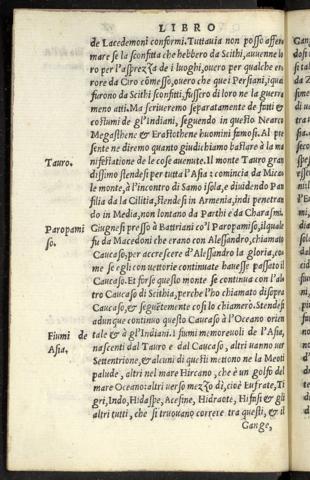 LIBRO
de Lacedemoni conformi. Tuttauia non posso affer
mare se la sconfitta che hebbero da Scithi, auuenne lo
ro per l'asprezza de i luoghi, ouero per qualche er
rore da Ciro cõmesso, ouero che quei Persiani, iqua
furono da Scithi sconfitti, fussero di loro ne la guerra
meno atti. Ma scriueremo separatamente de fatti &
costumi de gl'Indiani, seguendo in questo Nearco
Megasthene & Erastothene huomini famosi. Al pre
sente ne diremo quanto giudichiamo bastare à la ma
Tauro.
nifestatione de le cose auenute. Il monte Tauro gran
dissimo stendesi per tutta l'Asia: comincia da Mica
le monte, à l'incontro di Samo isola, e diuidendo Pan
filia da la Cilitia, stendesi in Armenia, indi penetran
do in Media, non lontano da Parthi e da Charasmi.
Paropami
so.
Giugnesi presso à Battriani co'l Paropamiso, ilquale
fu da Macedoni che erano con Alessandro, chiamato
Caucaso, per accrescere d'Alessandro la gloria, co
me se egli con uettorie continuate hauesse passato il
Caucaso. Et forse questo monte se continua con l'al
tro Caucaso di Scithia, perche l'ho chiamato disopra
Caucaso, & seguẽtemente cosi lo chiamerò. Stendesi
adunque continuo questo Caucaso à l'Oceano orien
Fiumi de
Asia.
tale & à gl'Indiani. I fiumi memoreuoli de l'Asia,
nascenti dal Tauro e dal Caucaso, altri uanno uer
Settentrione, & alcuni di questi mettono ne la Meoti
palude, altri nel mare Hircano, che è un golfo del
mare Oceano: altri uerso mezzo dì, cioè Eufrate, Ti
gri, Indo, Hidaspe, Acesine, Hidraote, Hifasi & gli
altri tutti, che si truouano correre tra questi, & il
Gange,